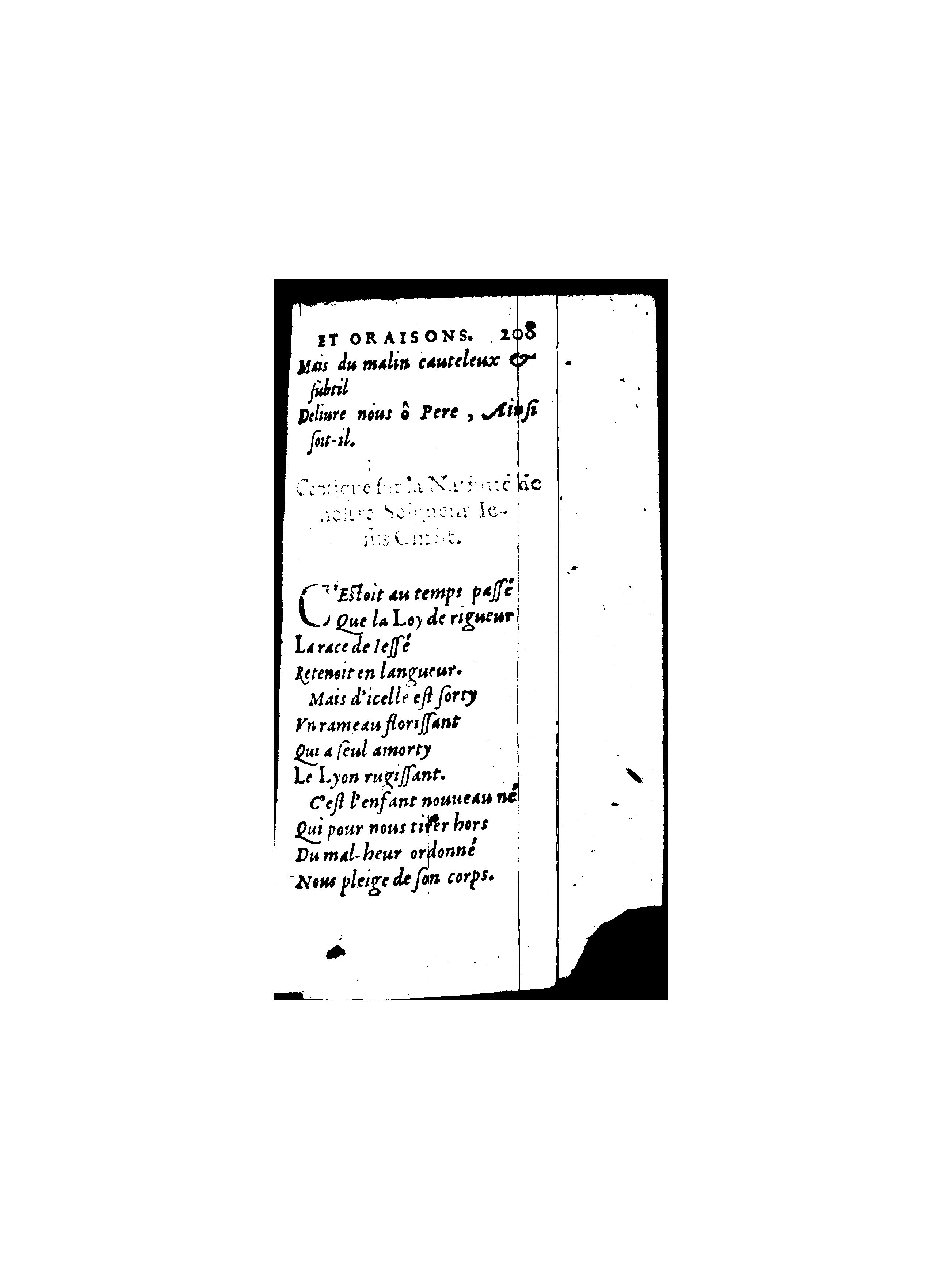 ET ORAISONS. 208
Mais du malin cauteleux &
ſubtil
Deliure nous ô Pere, Ainſi
ſoit-il.
Cantique ſur la Natiuité de
noſtre Seigneur Ie-
ſus Chriſt.
C'Eſtoit au temps paſſé
Que la Loy de rigueur
La race de Ieſſé
Retenoit en langueur.
Mais d'icelle eſt ſorty
Vn rameau floriſſant
Qui a ſeul amorty
Le Lyon rugiſſant.
C'eſt l'enfant nouueau né
Qui pour nous tirer hors
Du mal-heur ordonné
Nous pleige de ſon corps.